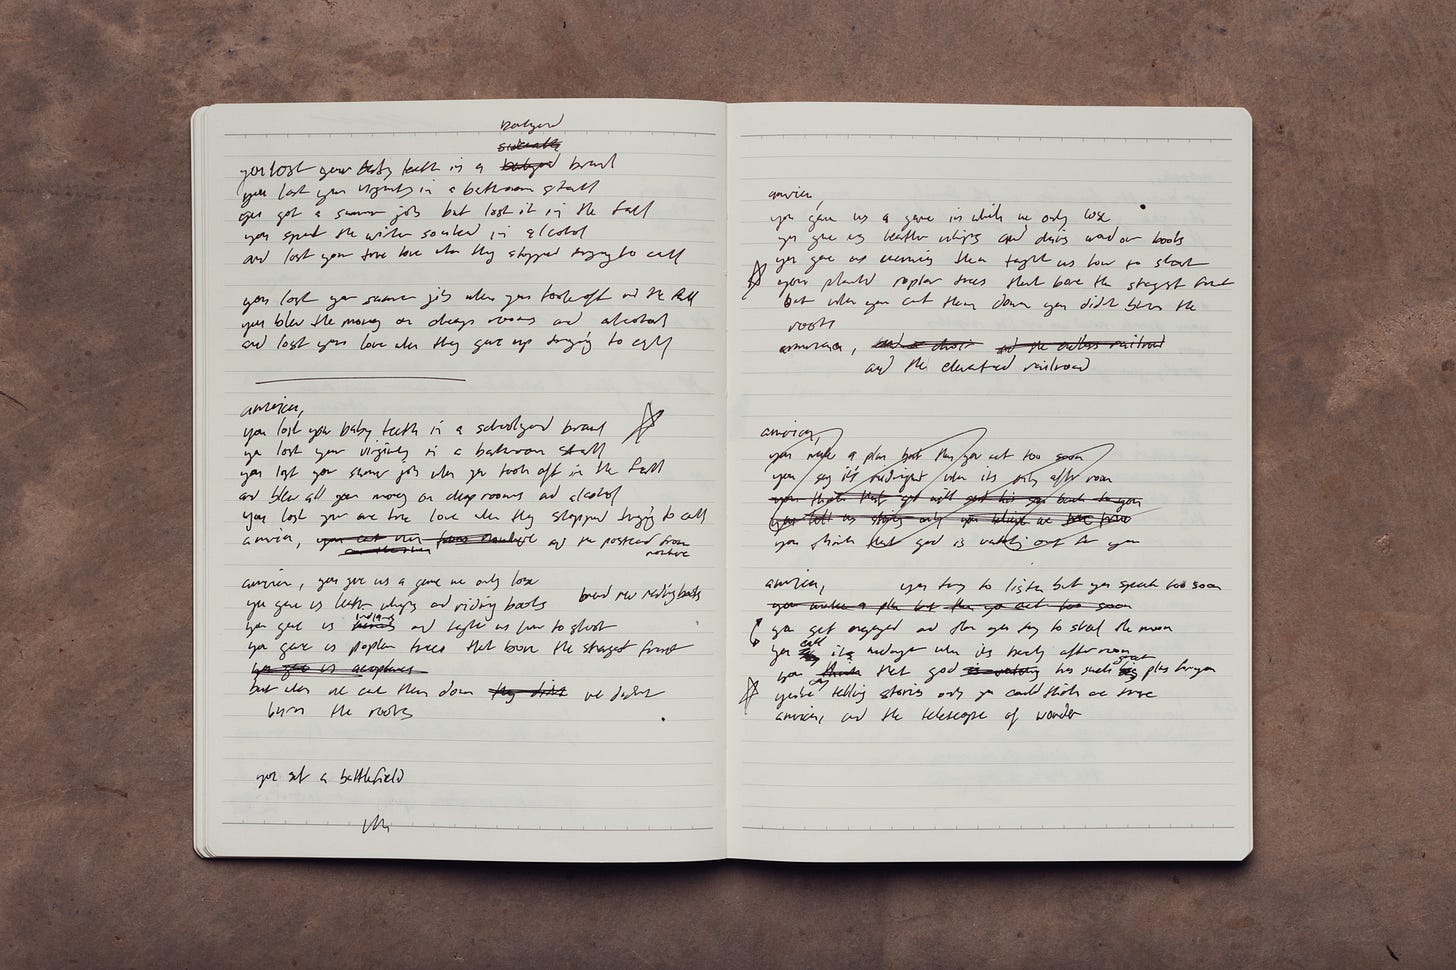 you lost your baby teeth in a brawl
you lost your virginity in a bathroom stall
you got a summer job but lost it in the fall
you spent the winter soaked in alcohol
and lost your true love when they stopped trying to call
you lost your summer job when you took off in the fall
you blew the money on cheap rooms and alcohol
and lost your love when they gave up trying to call
america,
you lost your baby teeth in a schoolyard brawl
you lost your virginity in a bathroom stall
you lost your summer job when you took off in the fall
and blew all your money on cheap rooms and alcohol
you lost your one true love when they stopped trying to call
america, and the postcard from
america, you give us a game we only lose
you give us leather whips and riding boots brand new riding boots
you give us and taught us how to shoot
you give us poplar trees that bore the strangest fruit
you give us aeroplanes
but when we cut them down they didnt we didnt
burn the roots
you set a battlefield
america,
you gave us a game in which we only lose
you give us leather whips and
you gave us then taught us how to shoot
you planted poplar trees that bore the strangest fruit
but when you cut them down you didnt burn the
roots
america, and the endless railroad
and the elevated railroad
america,
you make a plan but then you act too soon
you say it's midnight when its only after noon
you think that god is watching out for you
america, you try to listen but you speak too soon
you make a plan but then you act too soon
you get engaged and then you try to steal the moon
you call it midnight when its barely after noon
you think that god is watching has such great plans for you
you're telling stories only you could think are true
america, and the telescope of wonder